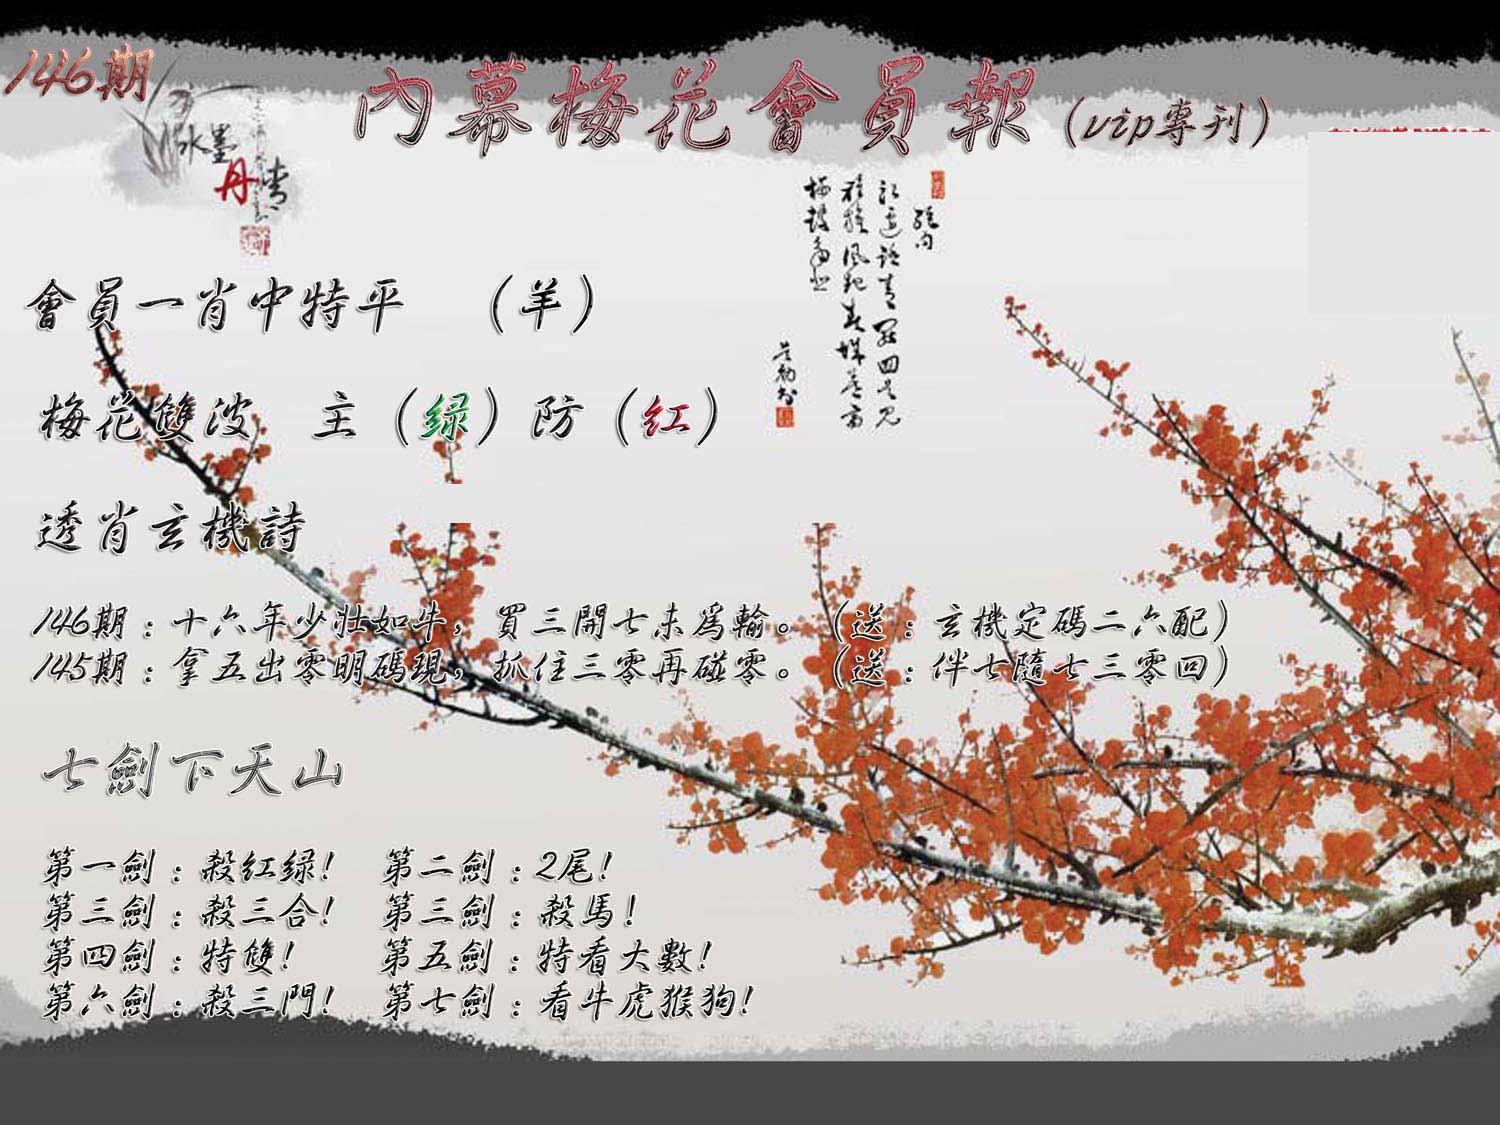 146期
內幕梅花會員報(vip專刊)
水墨
丹青
會員一肖中特平 (羊)
梅花雙波 主(绿)防(红)
透肖玄機詩
146期：十六年少壯如牛，買三開七未為輸。(送：玄機定碼二六配)
145期：拿五出零明碼現，抓住三零再碰零。(送：伴七隨七三零回)
七劍下天山
第一劍：殺紅绿! 第二劍：2尾!
第三劍：殺三合! 第三劍：殺馬!
第四劍：特雙! 第五劍：特看大數!
第六劍：殺三門! 第七劍：看牛虎猴狗!